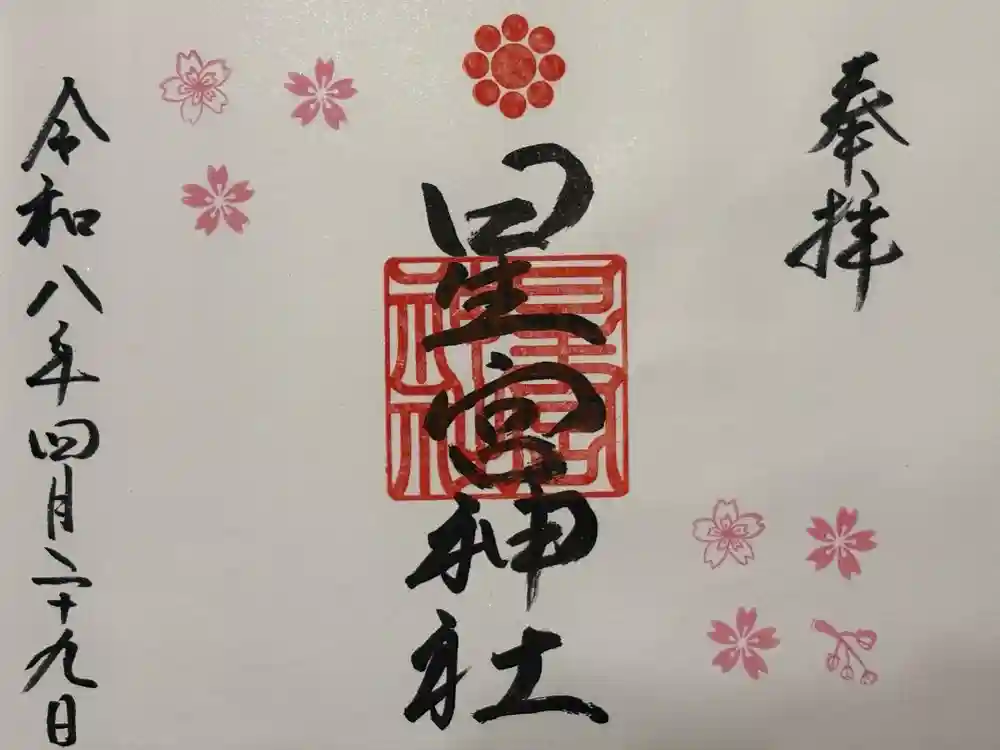 奉拝
星宮神社
星宮神社
令和八年四月二十九日